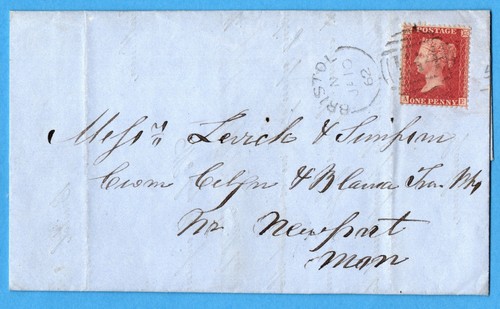 POSTAGE
ONE PENNY
BRISTOL
N
JA 10
62
Messrs Levick & Simpson
Cwm Celyn & Blaina Iron Wks
Nr Newport
Mon